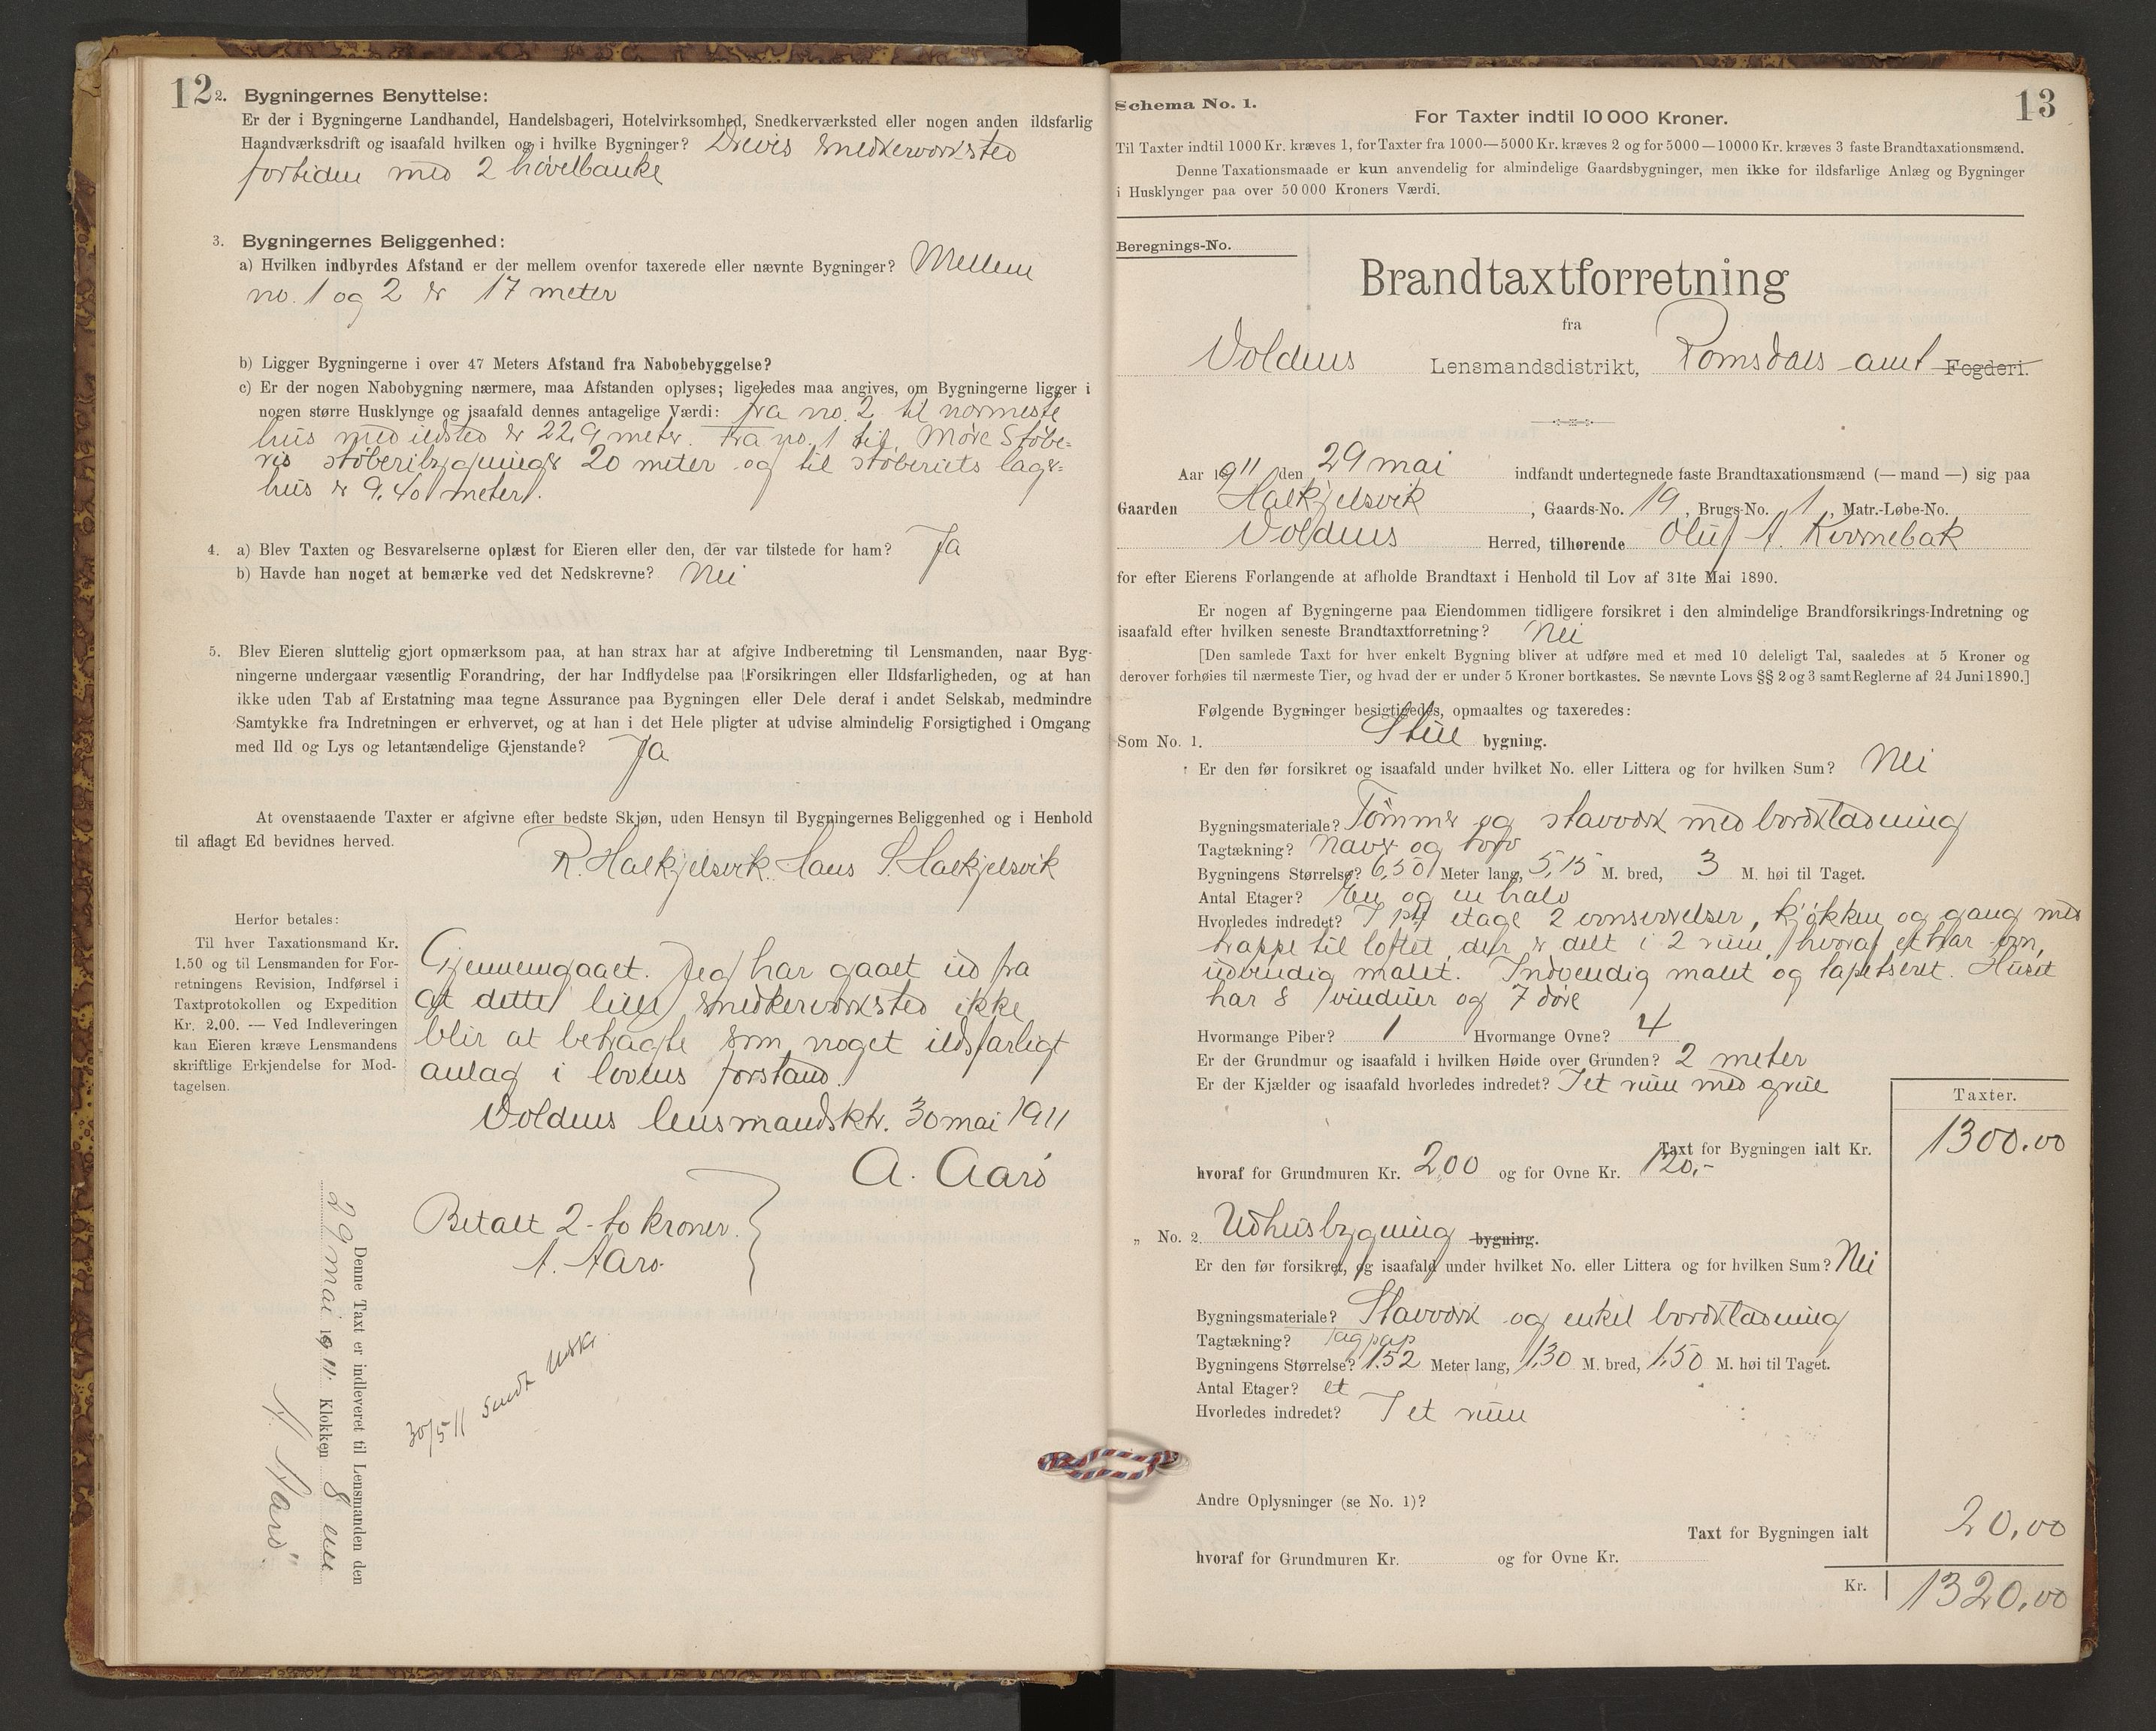 12
2. Bygningernes Benyttelse:
Er der i Bygningerne Landhandel, Handelsbageri, Hotelvirksomhed, Snedkerværksted eller nogen anden ildsfarlig
Haandværksdrift og isaafald hvilken og i hvilke Bygninger? Drives snedkerverksted
fortiden med 2 høvelbanke
3. Bygningernes Beliggenhed:
a) Hvilken indbyrdes Afstand er der mellem ovenfor taxerede eller nævnte Bygninger? Mellem
no. 1 og 2 er 17 meter
b) Ligger Bygningerne i over 47 Meters Afstand fra Nabobebyggelse?
c) Er der nogen Nabobygning nærmere, maa Afstanden oplyses; ligeledes maa angives, om Bygningerne ligger i
nogen større Husklynge og isaafald dennes antagelige Værdi: fra no. 2 til nærmeste
hus med ildsted er 22,9 meter. Fra no. 1 til Møre Støbe-
ris støberibygninger 20 meter og til støberiets lager-
hus er 9,40 meter.
4. a) Blev Taxten og Besvarelserne oplæst for Eieren eller den, der var tilstede for ham? Ja
b) Havde han noget at bemærke ved det Nedskrevne? Nei
5. Blev Eieren sluttelig gjort opmærksom paa, at han strax har at afgive Indberetning til Lensmanden, naar Byg-
ningerne undergaar væsentlig Forandring, der har Indflydelse paa Forsikringen eller Ildsfarligheden, og at han
ikke uden Tab af Erstatning maa tegne Assurance paa Bygningen eller Dele deraf i andet Selskab, medmindre
Samtykke fra Indretningen er erhvervet, og at han i det Hele pligter at udvise almindelig Forsigtighed i Omgang
med Ild og Lys og letantændelige Gjenstande? Ja
At ovenstaaende Taxter er afgivne efter bedste Skjøn, uden Hensyn til Bygningernes Beliggenhed og i Henhold
til aflagt Ed bevidnes herved.
R. Halkjelsvik. Hans S. Halkjelsvik
Herfor betales:
Til hver Taxationsmand Kr.
1.50 og til Lensmanden for For-
retningens Revision, Indførsel i
Taxtprotokollen og Expedition
Kr. 2.00. — Ved Indleveringen
kan Eieren kræve Lensmandens
skriftlige Erkjendelse for Mod-
tagelsen.
Gjennemgaaet. Jeg har gaaet ud fra
at dette lille snedkerverksted ikke
blir at betragte som noget ildsfarligt
anlæg i lovens forstand.
Voldens lensmandsktr. 30 mai 1911
A. Aarø
Betalt 2 - to kroner.
A. Aarø.
Denne Taxt er indleveret til Lensmanden den
29 mai 1911 Klokken 8 em
A. Aarø
30/5 11 Sendt
13
Schema No. 1.
For Taxter indtil 10 000 Kroner.
Til Taxter indtil 1000 Kr. kræves 1, for Taxter fra 1000—5000 Kr. kræves 2 og for 5000—10000 Kr. kræves 3 faste Brandtaxationsmænd.
Denne Taxationsmaade er kun anvendelig for almindelige Gaardsbygninger, men ikke for ildsfarlige Anlæg og Bygninger
i Husklynger paa over 50 000 Kroners Værdi.
Beregnings-No.
Brandtaxtforretning
fra
Voldens Lensmandsdistrikt, Romsdals amt Fogderi.
Aar 1911 den 29 mai indfandt undertegnede faste Brandtaxationsmænd (— mand —) sig paa
Gaarden Halkjelsvik, Gaards-No. 19, Brugs-No. 1, Matr.-Løbe-No.
Voldens Herred, tilhørende Oluf A. Kvernebak
for efter Eierens Forlangende at afholde Brandtaxt i Henhold til Lov af 31te Mai 1890.
Er nogen af Bygningerne paa Eiendommen tidligere forsikret i den almindelige Brandforsikrings-Indretning og
isaafald efter hvilken seneste Brandtaxtforretning? Nei
[Den samlede Taxt for hver enkelt Bygning bliver at udføre med et med 10 deleligt Tal, saaledes at 5 Kroner og
derover forhøies til nærmeste Tier, og hvad der er under 5 Kroner bortkastes. Se nævnte Lovs §§ 2 og 3 samt Reglerne af 24 Juni 1890.]
Følgende Bygninger besigtigedes, opmaaltes og taxeredes:
Som No. 1. Stue bygning.
Er den før forsikret og isaafald under hvilket No. eller Littera og for hvilken Sum? Nei
Bygningsmateriale? Tømmer og stavverk med bordklædning
Tagtækning? Næver og torv
Bygningens Størrelse? 6,50 Meter lang, 5,15 M. bred, 3 M. høi til Taget.
Antal Etager? En og en halv
Hvorledes indredet? I 1ste etage 2 ovnsværelser, kjøkken og gang med
trappe til loftet, der er delt i 2 rum, hvoraf et har ovn,
udvendig malet. Indvendig malet og tapetseret. Huset
har 8 vinduer og 7 døre
Hvormange Piber? 1 Hvormange Ovne? 4
Er der Grundmur og isaafald i hvilken Høide over Grunden? 2 meter
Er der Kjælder og isaafald hvorledes indredet? I et rum med grue
Taxter.
Taxt for Bygningen ialt Kr. 1300.00
hvoraf for Grundmuren Kr. 200 og for Ovne Kr. 120,-
„ No. 2. Udhusbygning bygning.
Er den før forsikret, og isaafald under hvilket No. eller Littera og for hvilken Sum? Nei
Bygningsmateriale? Stavverk og enkel bordklædning
Tagtækning? Tagpap
Bygningens Størrelse? 1.52 Meter lang, 1,30 M. bred, 1,50 M. høi til Taget.
Antal Etager? et
Hvorledes indredet? I et rum
Andre Oplysninger (se No. 1)?
Taxt for Bygningen ialt 20,00
hvoraf for Grundmuren Kr. og for Ovne Kr.
Kr. 1320,00